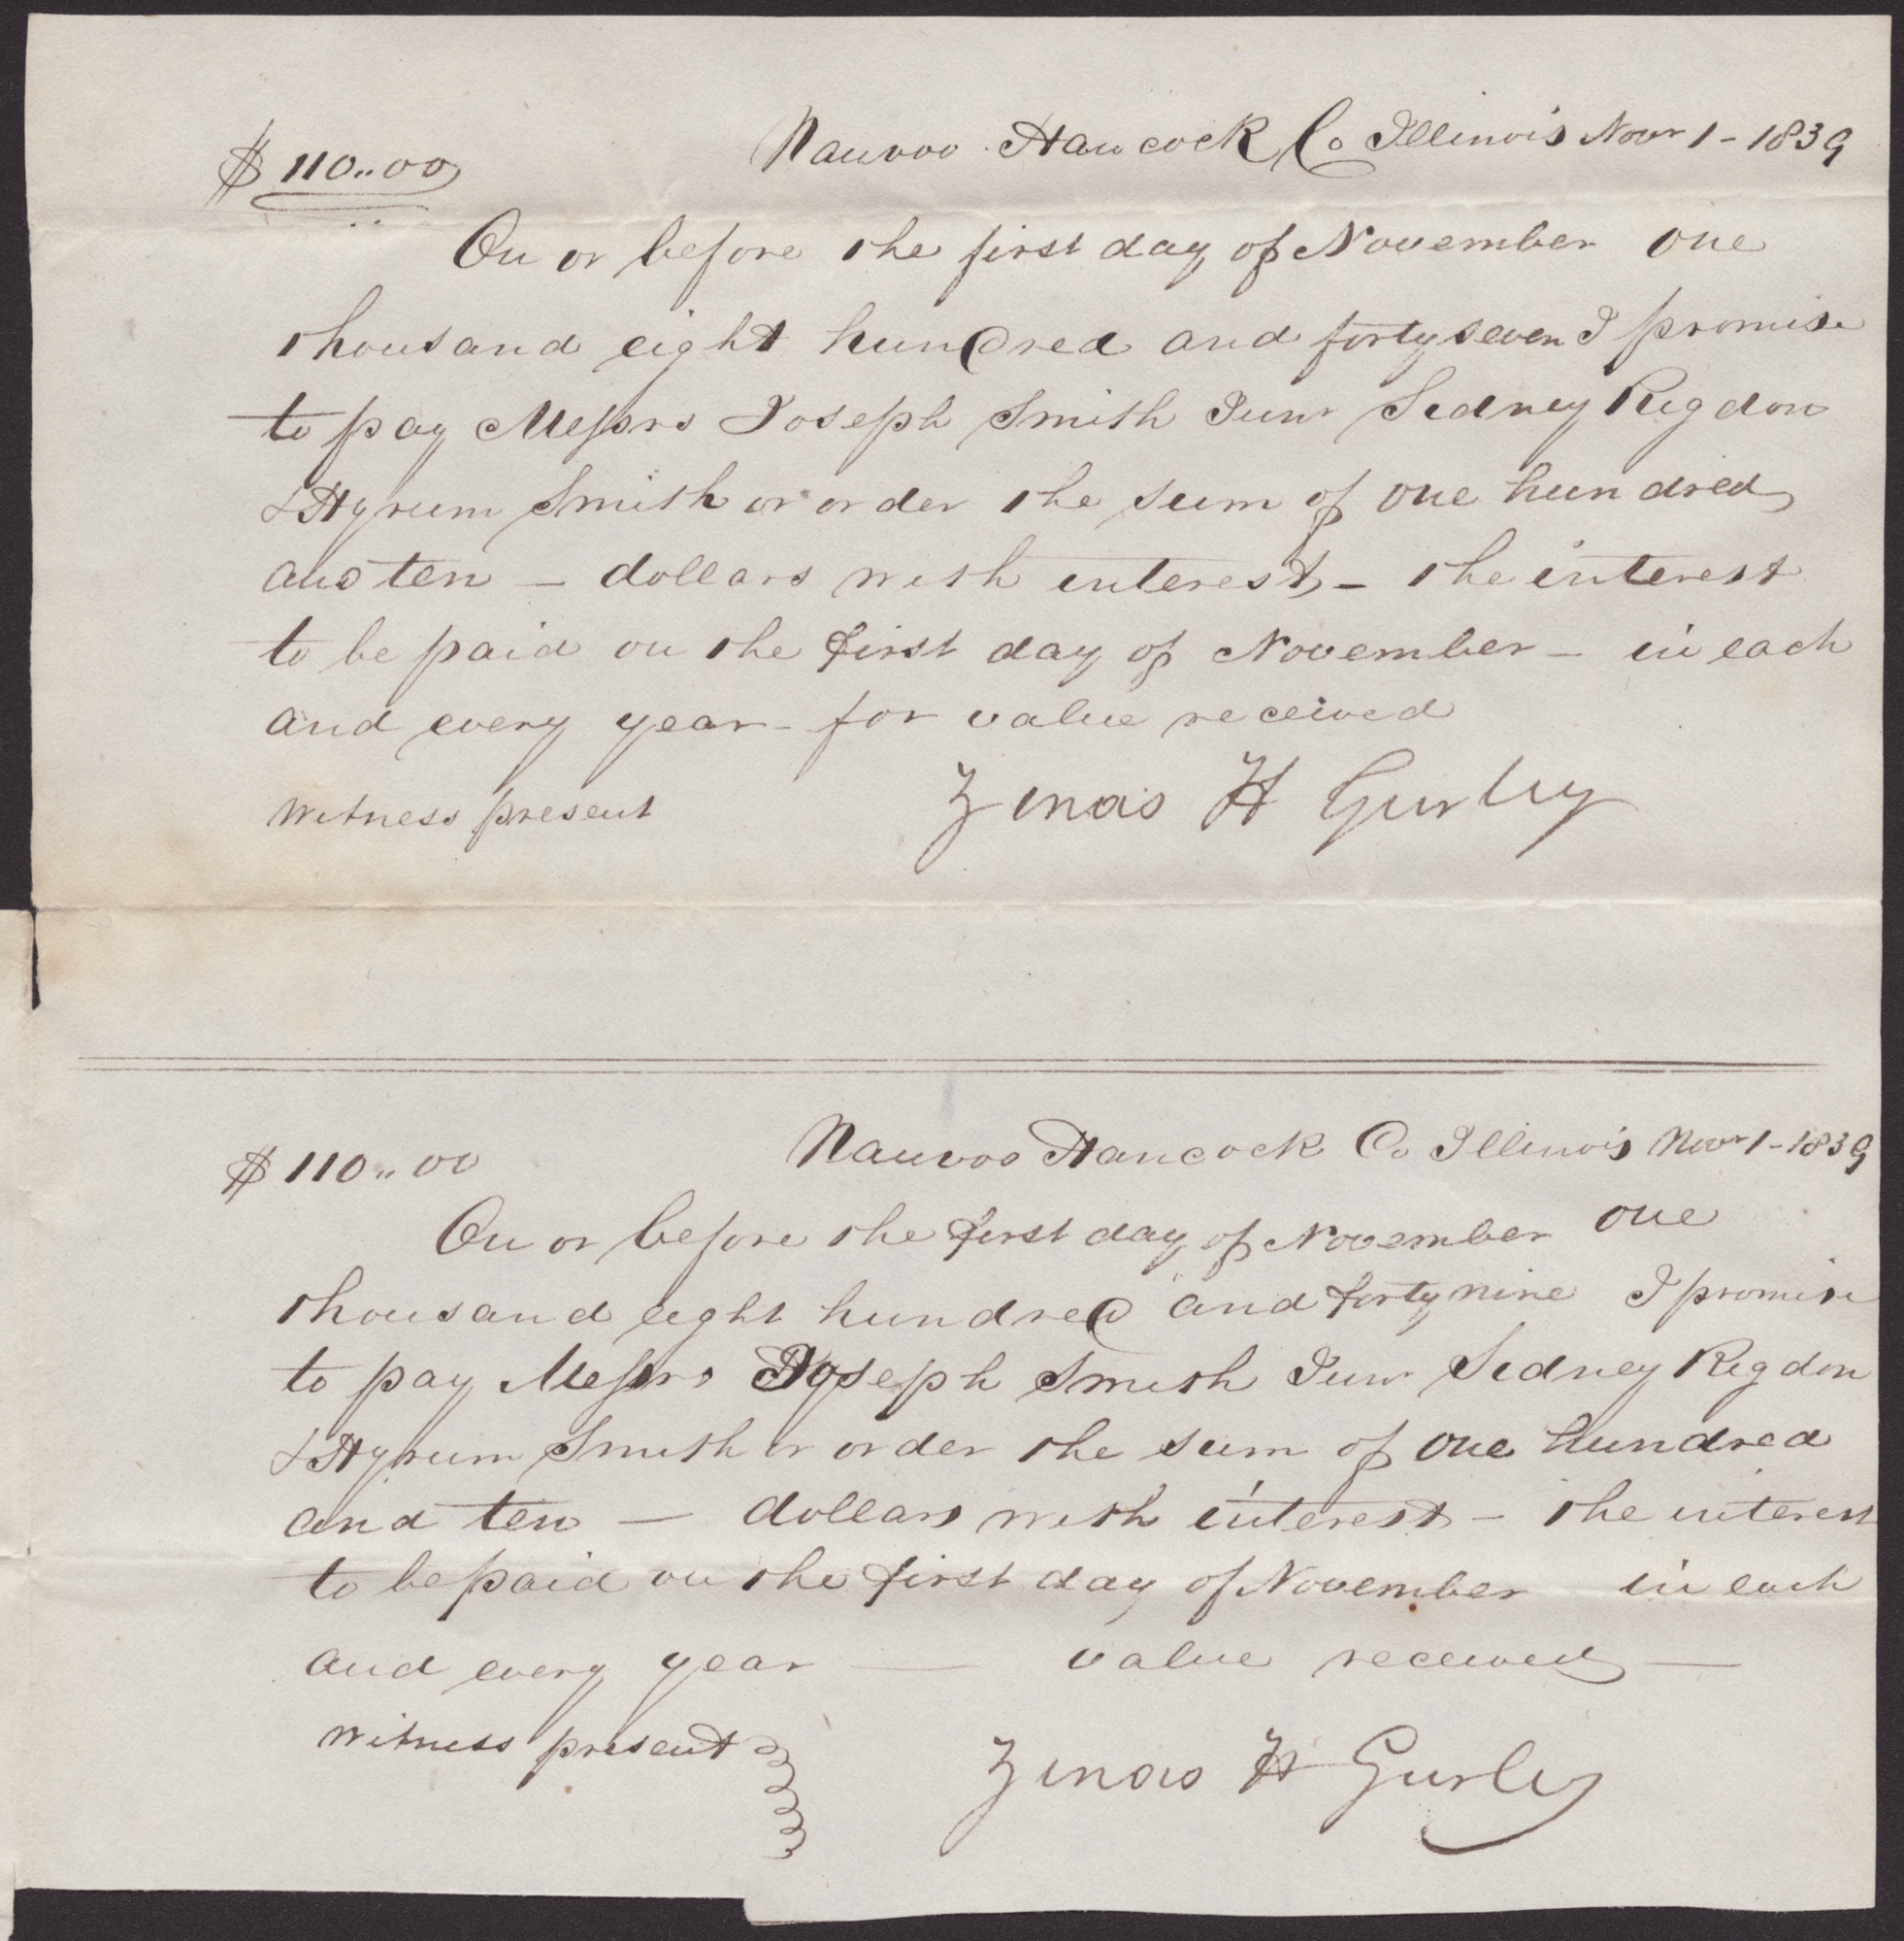 Nauvoo Hancock Co Illinois Novr 1 - 1839
$ 110..00
On or before the first day of November one
thousand eight hundred and forty seven I promise
to pay Messrs Joseph Smith Junr Sidney Rigdon
& Hyrum Smith or order the sum of one hundred
and ten — dollars with interest, - the interest
to be paid on the first day of November — in each
and every year - for value received
witness present Zenas H Gurley
Nauvoo Hancock Co Illinois Novr 1 - 1839
$ 110.. 00
On or before the first day of November one
thousand eight hundred and forty nine I promise
to pay Messrs Joseph Smith Junr Sidney Rigdon
& Hyrum Smith or order the sum of one hundred
and ten — dollars with interest - the interest
to be paid on the first day of November in each
and every year — value received —
witness present Zenas H Gurley